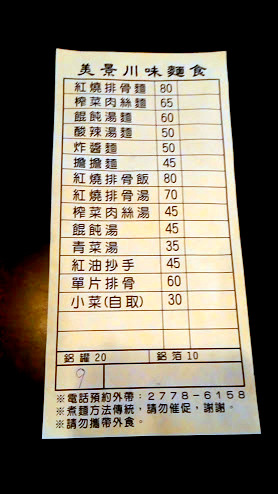 美景川味麵食
紅燒排骨麵 80
榨菜肉絲麵 65
餛飩湯麵 60
酸辣湯麵 50
炸醬麵 50
擔擔麵 45
紅燒排骨飯 80
紅燒排骨湯 70
榨菜肉絲湯 45
餛飩湯 45
青菜湯 35
紅油抄手 45
單片排骨 60
小菜(自取) 30
鋁罐20 鋁箔10
9
※電話預約外帶：2778-6158
※煮麵方法傳統，請勿催促，謝謝。
※請勿攜帶外食。